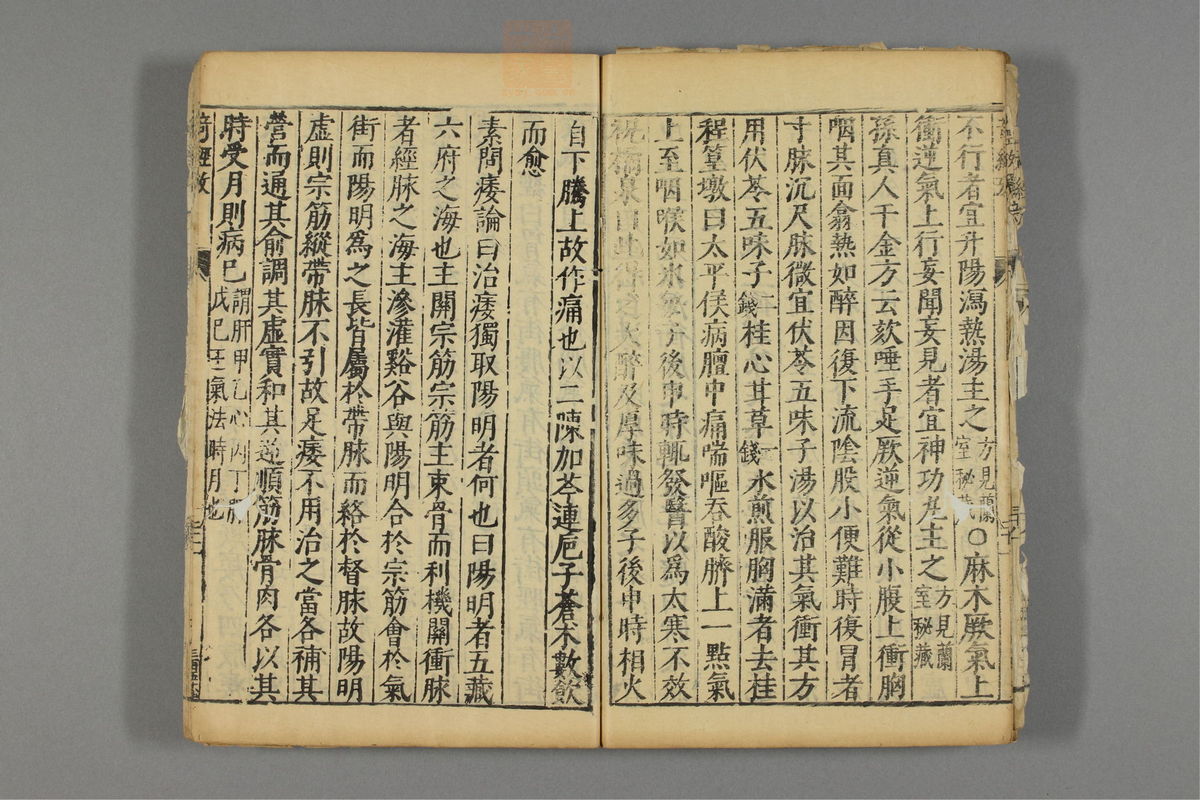 不行者宜升陽瀉熱湯主之方見蘭室秘藏○麻木厥氣上
衝逆氣上行妄聞妄見者宜神功丸主之方見蘭室秘藏
孫真人千金方云欬唾手足厥逆氣從小腹上衝胸
咽其面翕熱如醉因復下流陰股小便難時復冒者
寸脉沉尺脉微宜伏苓五味子湯以治其氣衝其方
用伏苓五味子二錢桂心甘草一錢水煎服胸滿者去桂
程篁墩曰太平侯病膻中痛喘嘔吞酸臍上一點氣
上至咽喉如氷每子後申時輒發醫以爲太寒不效
祝橘泉曰此得之火醉及厚味過多子後申時相火
自下騰上故作痛也以二陳加芩連巵子蒼术數飲
而愈
素問痿論曰治痿獨取陽明者何也曰陽明者五藏
六府之海也主閏宗筋宗筋主束骨而利機關衝脉
者經脉之海主滲灌谿谷與陽明合於宗筋會於氣
街而陽明爲之長皆屬於帶脉而絡於督脉故陽明
虛則宗筋縱帶脉不引故足痿不用治之當各補其
營而通其俞調其虛實和其逆順筋脉骨肉各以其
時受月則病已謂肝甲乙心丙丁脾戊己王氣法時月也
奇經攷